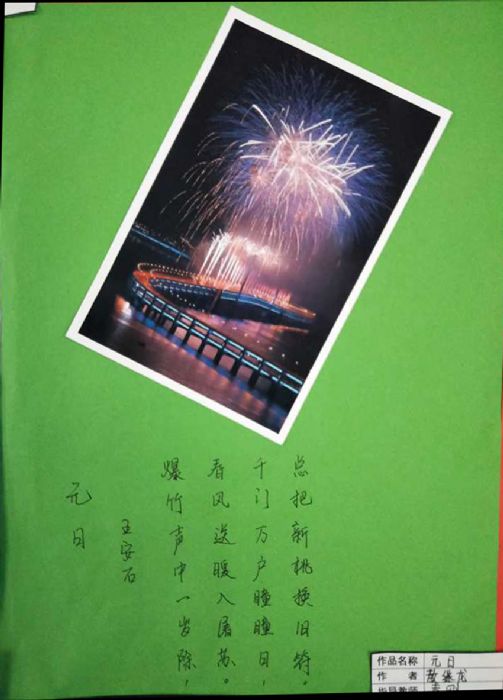 元日
王安石
爆竹声中一岁除，
春风送暖入屠苏。
千门万户瞳瞳日，
总把新桃换旧符。
作品名称 元日
作者
指导教师